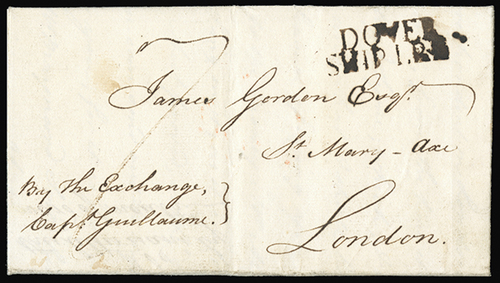 DOVER
SHIP LRE
James Gordon Esqr.
St. Mary-axe
London.
By the Exchange,
Capt. Guillaume.